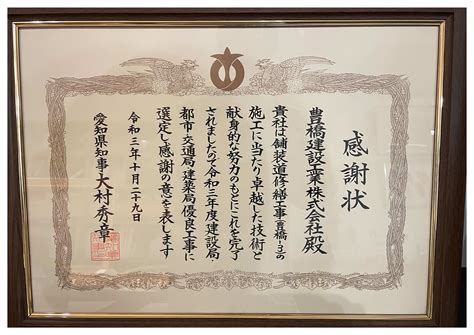 感謝状
豊橋建設工業株式会社殿
貴社は舗装道修繕工事(豊橋-3)の
施工に当たり卓越した技術と
献身的な努力のもとにこれを完了
されましたので令和三年度建設局・
都市・交通局・建築局優良工事に
選定し感謝の意を表します
令和三年十月二十九日
愛知県知事大村秀章